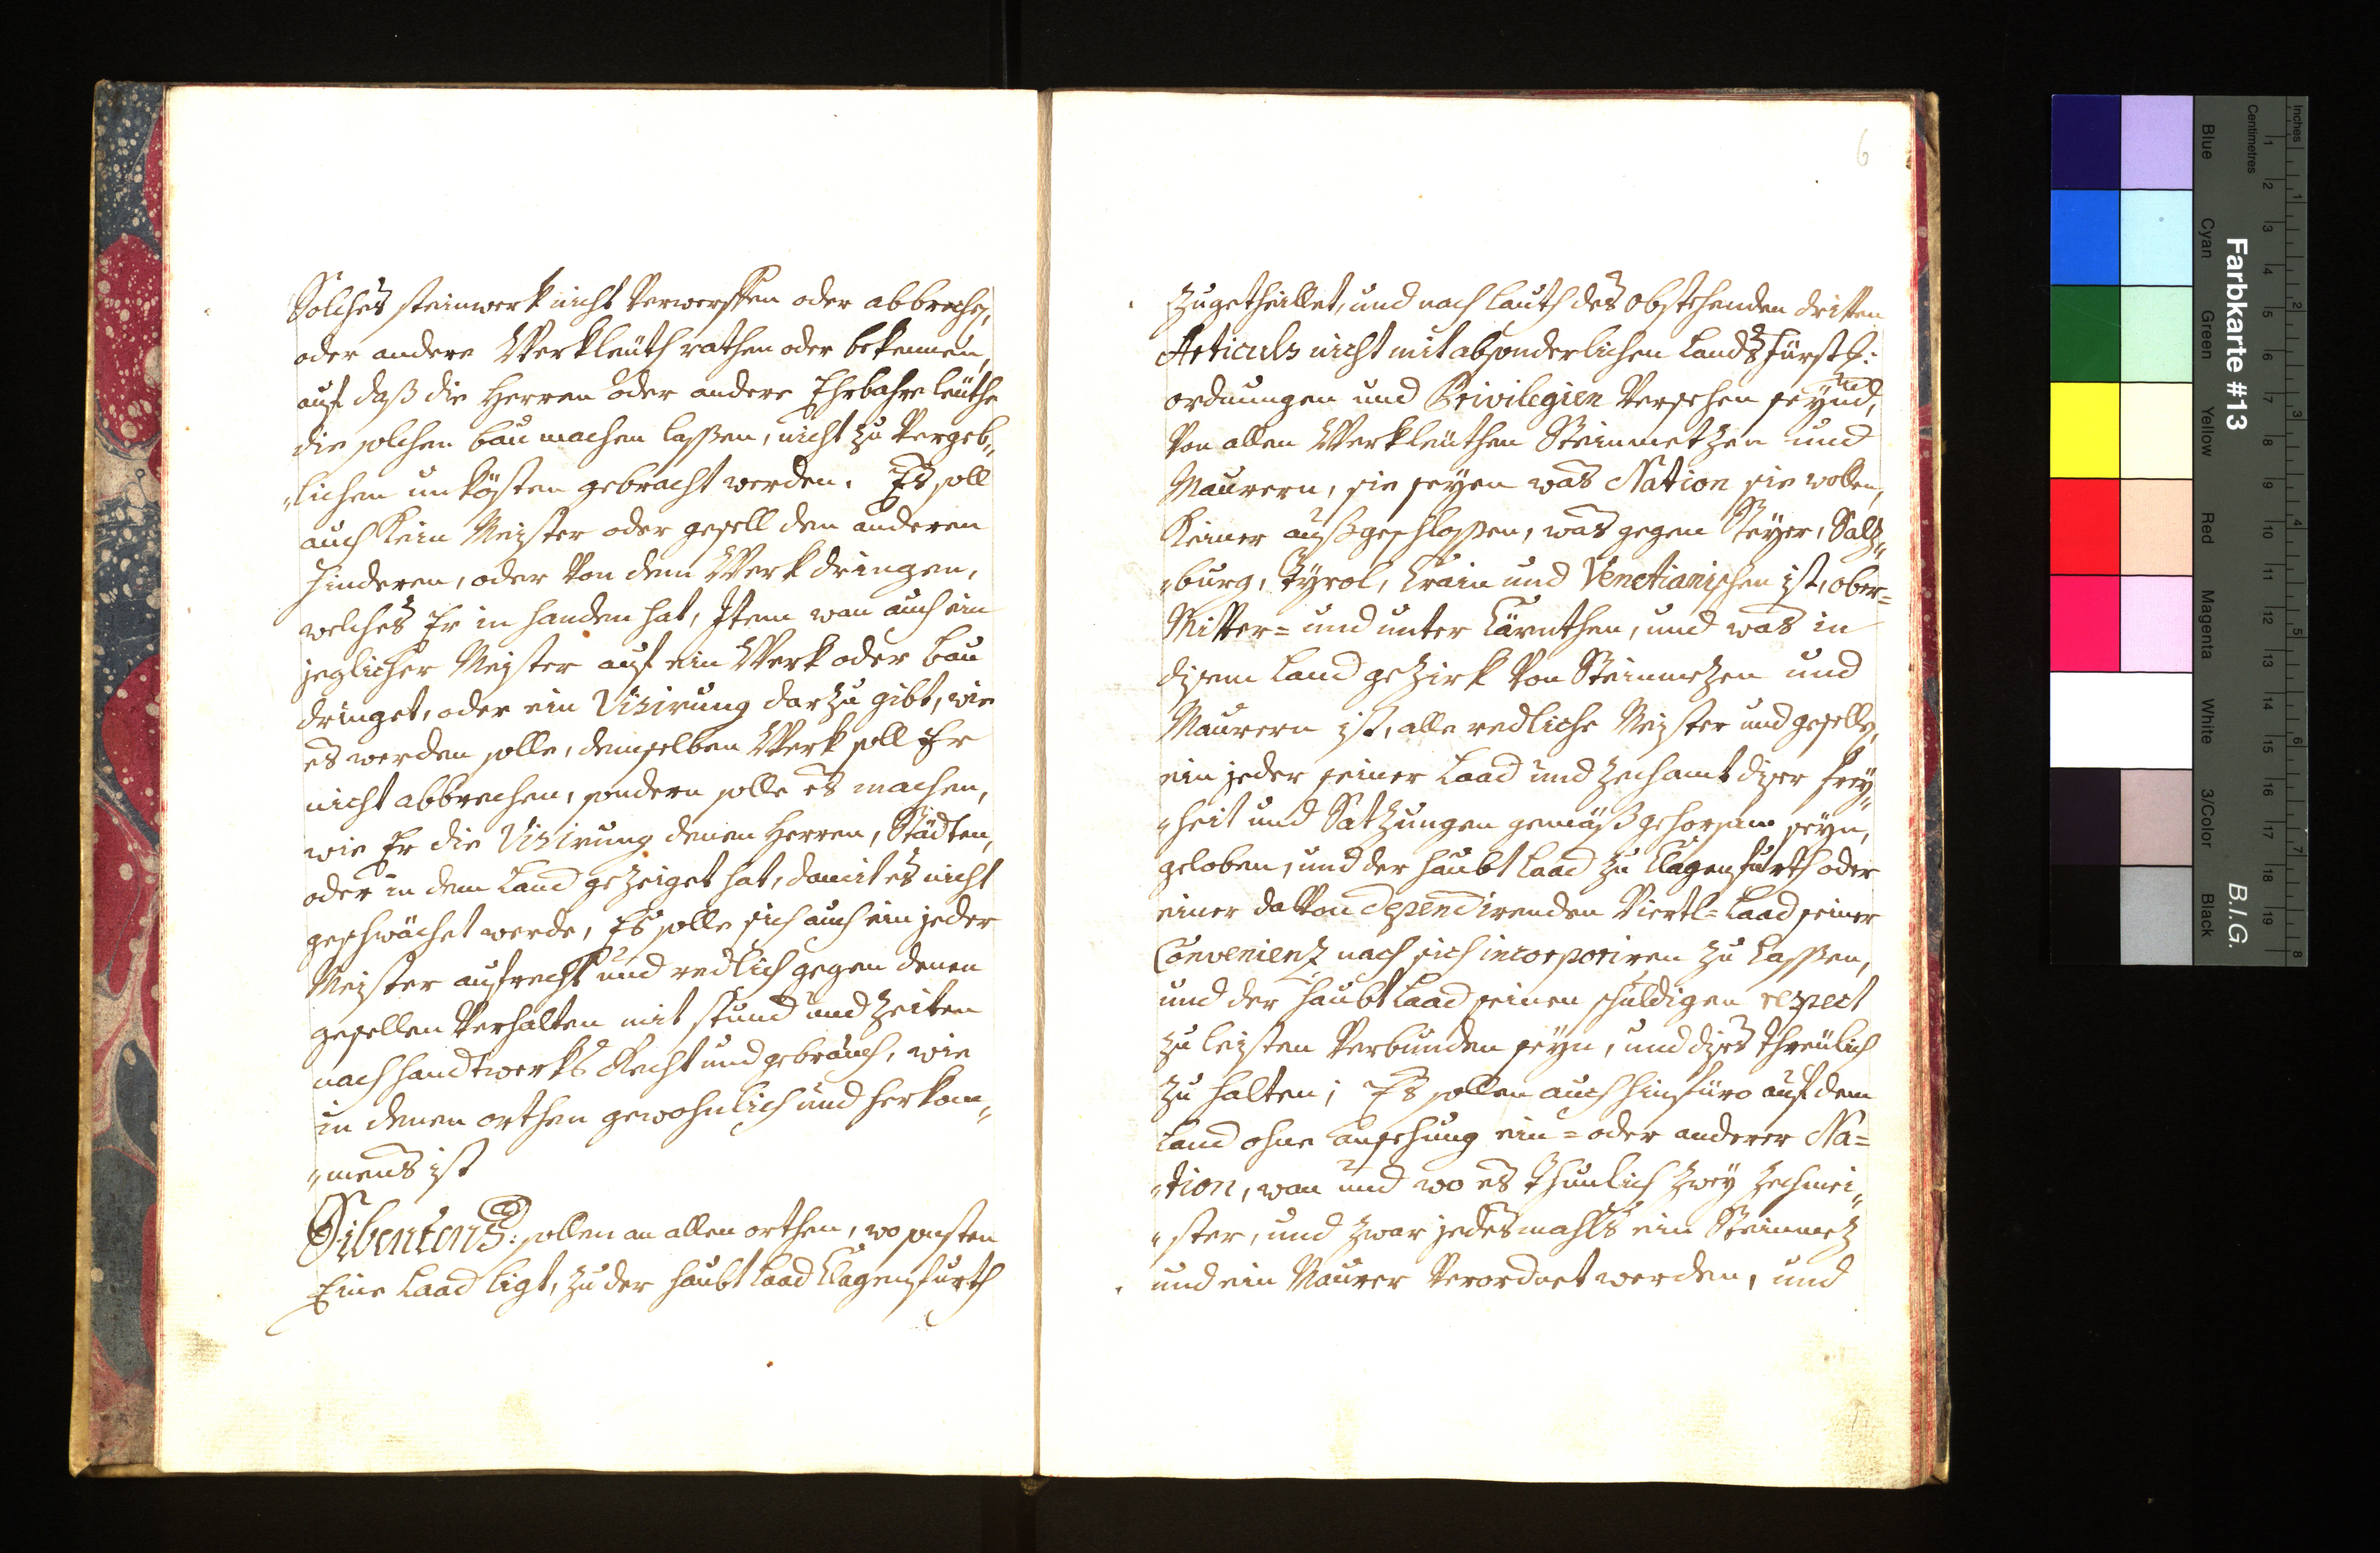 Solches steinwerk nicht verwerffen oder abbrechen,
oder andere Werkleüth rathen oder bekennen,
auf daß die Herren oder andere Ehrbahre leüthe
die solchen bau machen lassen, nicht zu vergeb„
„lichen unkösten gebracht werden. Es soll
auch Kein Meister oder gesell den anderen
hinderen, oder von dem Werk dringen,
welches Er in handen hat, Item wan auch ein
jeglicher Meister auf ein Werk oder bau
dringet, oder ein Visirung darzu gibt, wie
es werden solle, demselben Werk soll Er
nicht abbrechen, sondern solle es machen,
wie Er die Visirung denen Herren, Städten,
oder in dem Land gezeiget hat, damit es nicht
geschwächet werde, Es solle sich auch ein jeder
Meister aufrecht und redlich gegen denen
gesellen verhalten mit stund und Zeiten
nach handtwerks Recht und gebräuch, wie
in denen orthen gewohnlich und herkom„
„mens ist
Sibentens: sollen an allen orthen, wo sonsten
Eine Laad ligt, zu der haubt Laad Clagenfurth
6
zugetheillet, und nach lauth des obstehenden dritten
Articuls nicht mit absonderlichen Lands Fürstl:
ordnungen und Privilegien versehen seynd,
von allen Werkleüthen Steinmetzen und
Maurern, sie seyen was Nation sie wollen,
Keiner außgeschlossen, was gegen Steyer, Saltz„
„burg, Tyrol, Crain und Venetianischen ist, ober=
Mitter= und unter Cärnthen, und was in
disem Land gezirk von Steinmezen und
Maurern ist, alle redliche Meister und gesellen,
ein jeder seiner Laad und Zechamt diser frey„
„heit und Satzungen gemäß gehorsam seyn,
geloben, und der haubt Laad zu Clagenfurth oder
einer davon dependirenden Viertl=Laad seiner
Convenienz nach sich incorporiren zu lassen,
und der haubt Laad seinen schuldigen respect
zu leisten verbunden seyn, und dises threülich
zu halten; Es sollen auch hinfüro auf dem
Land ohne ansehung ein= oder anderer Na=
„tion, wan und wo es thunlich zwey Zechmei„
„ster, und zwar jedesmahls ein Steinmez
und ein Maurer verordnet werden, und
Inches
Centimetres
1 2 3 4 5 6 7 8
1 2 3 4 5 6 7 8 9 10 11 12 13 14 15 16 17 18 19
Farbkarte #13
B.I.G.
Blue
Cyan
Green
Yellow
Red
Magenta
White
3/Color
Black